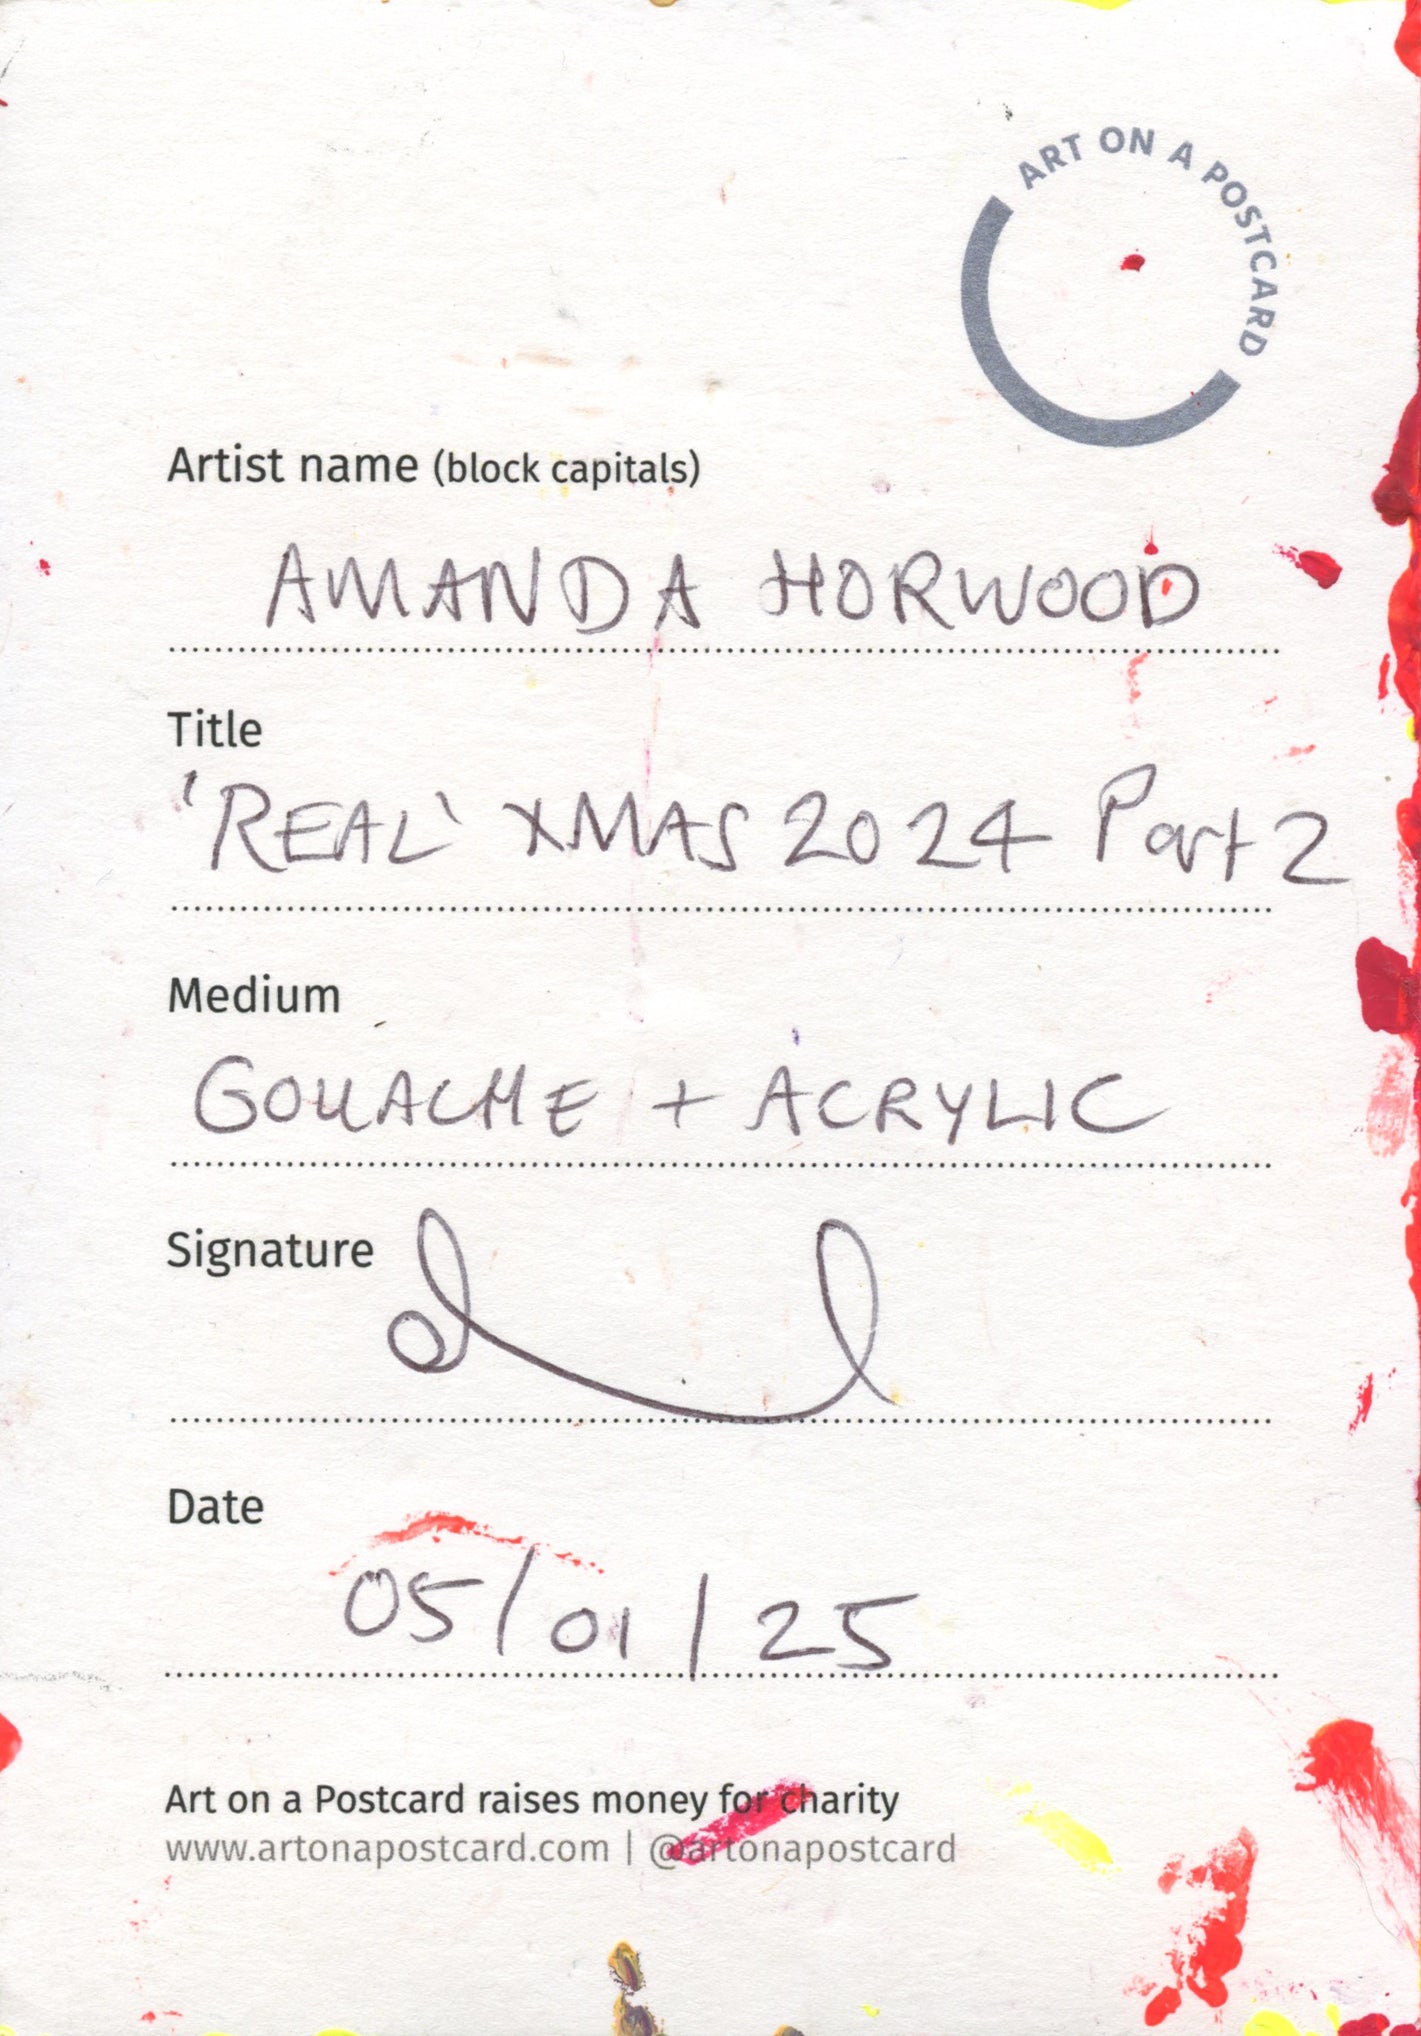 ART ON A POSTCARD
Artist name (block capitals)
AMANDA HORWOOD
Title
'REAL' XMAS 2024 Part 2
Medium
GOUACHE + ACRYLIC
Signature
Date
05/01/25
Art on a Postcard raises money for charity
www.artonapostcard.com | @artonapostcard